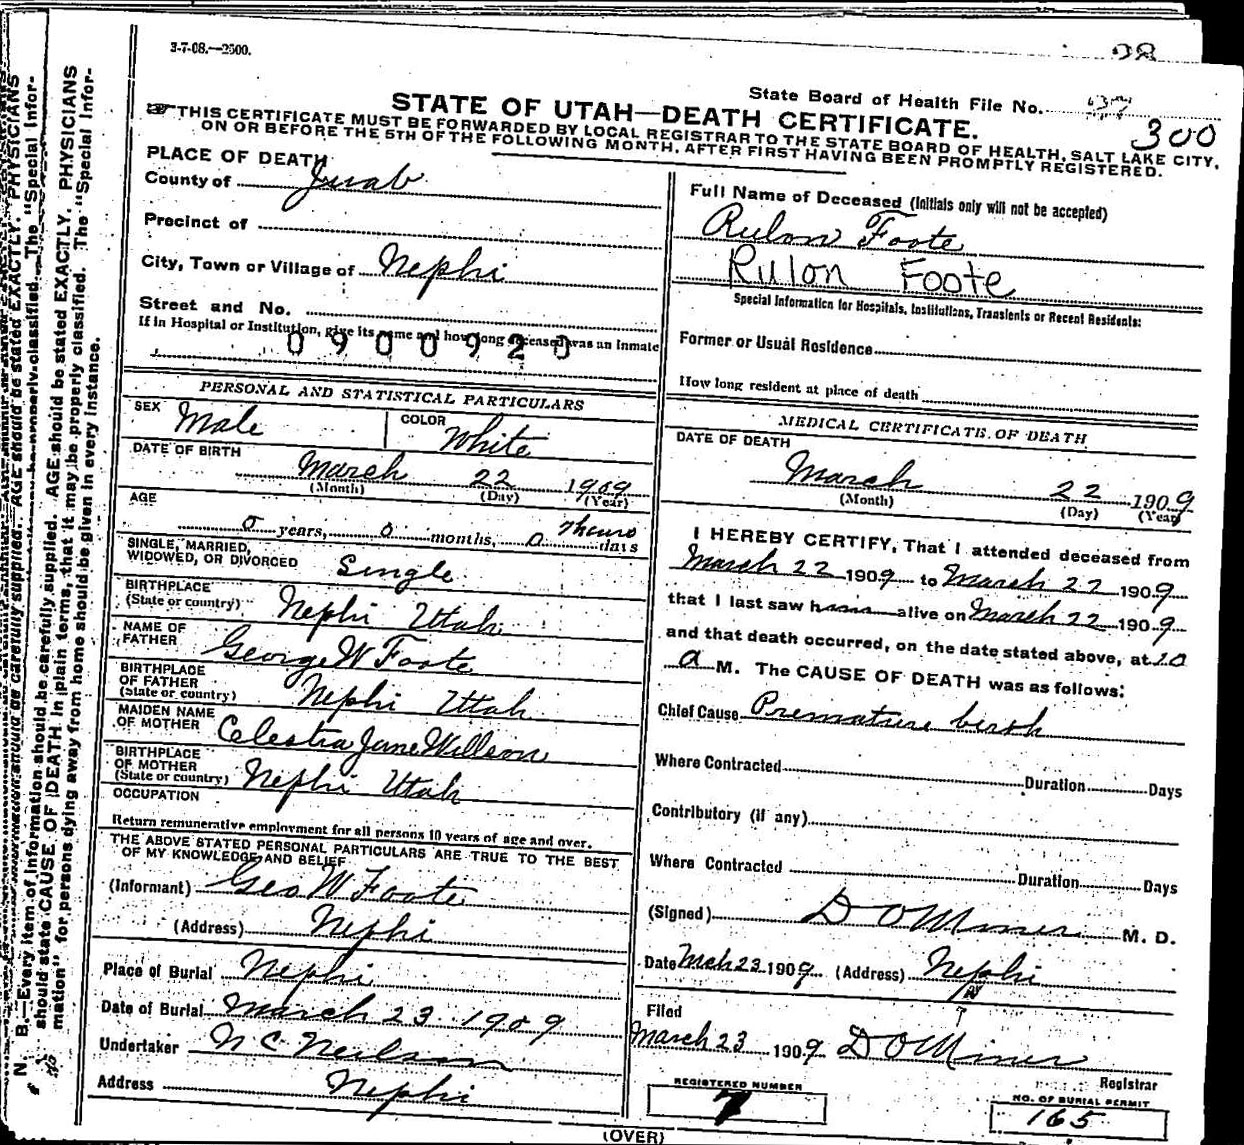 3-7-08.—2500.
State Board of Health File No.
300
STATE OF UTAH—DEATH CERTIFICATE.
THIS CERTIFICATE MUST BE FORWARDED BY LOCAL REGISTRAR TO THE STATE BOARD OF HEALTH, SALT LAKE CITY,
ON OR BEFORE THE 5TH OF THE FOLLOWING MONTH, AFTER FIRST HAVING BEEN PROMPTLY REGISTERED.
PLACE OF DEATH
County of Juab
Precinct of
City, Town or Village of Nephi
Street and No.
If in Hospital or Institution, give its name and how long deceased was an inmate
0900920
PERSONAL AND STATISTICAL PARTICULARS
SEX Male COLOR White
DATE OF BIRTH
March 22 1909
(Month) (Day) (Year)
AGE
0 years, 0 months, 0 7 hours days
SINGLE, MARRIED,
WIDOWED, OR DIVORCED Single
BIRTHPLACE
(State or country) Nephi Utah
NAME OF
FATHER George W Foote
BIRTHPLACE
OF FATHER
(State or country) Nephi Utah
MAIDEN NAME
OF MOTHER Celestia Jane Willson
BIRTHPLACE
OF MOTHER
(State or country) Nephi Utah
OCCUPATION
Return remunerative employment for all persons 10 years of age and over.
THE ABOVE STATED PERSONAL PARTICULARS ARE TRUE TO THE BEST
OF MY KNOWLEDGE AND BELIEF
(Informant) Geo W Foote
(Address) Nephi
Place of Burial Nephi
Date of Burial March 23 1909
Undertaker N C Neilson
Address Nephi
Full Name of Deceased (Initials only will not be accepted)
Rulon Foote
Rulon Foote
Special Information for Hospitals, Institutions, Transients or Recent Residents:
Former or Usual Residence
How long resident at place of death
MEDICAL CERTIFICATE OF DEATH
DATE OF DEATH
March 22 1909
(Month) (Day) (Year)
I HEREBY CERTIFY, That I attended deceased from
March 22 1909 to March 22 1909
that I last saw him alive on March 22 1909
and that death occurred, on the date stated above, at 10
a M. The CAUSE OF DEATH was as follows:
Chief Cause Premature birth
Where Contracted Duration Days
Contributory (if any)
Where Contracted Duration Days
(Signed) D O Miner M. D.
Date Mch 23 1909 (Address) Nephi
Filed
March 23 1909 D O Miner
Registrar
REGISTERED NUMBER
7
NO. OF BURIAL PERMIT
165
(OVER)
N. B.—Every item of information should be carefully supplied. AGE should be stated EXACTLY. PHYSICIANS
should state CAUSE OF DEATH in plain terms, that it may be properly classified. The "Special Infor-
mation" for persons dying away from home should be given in every instance.